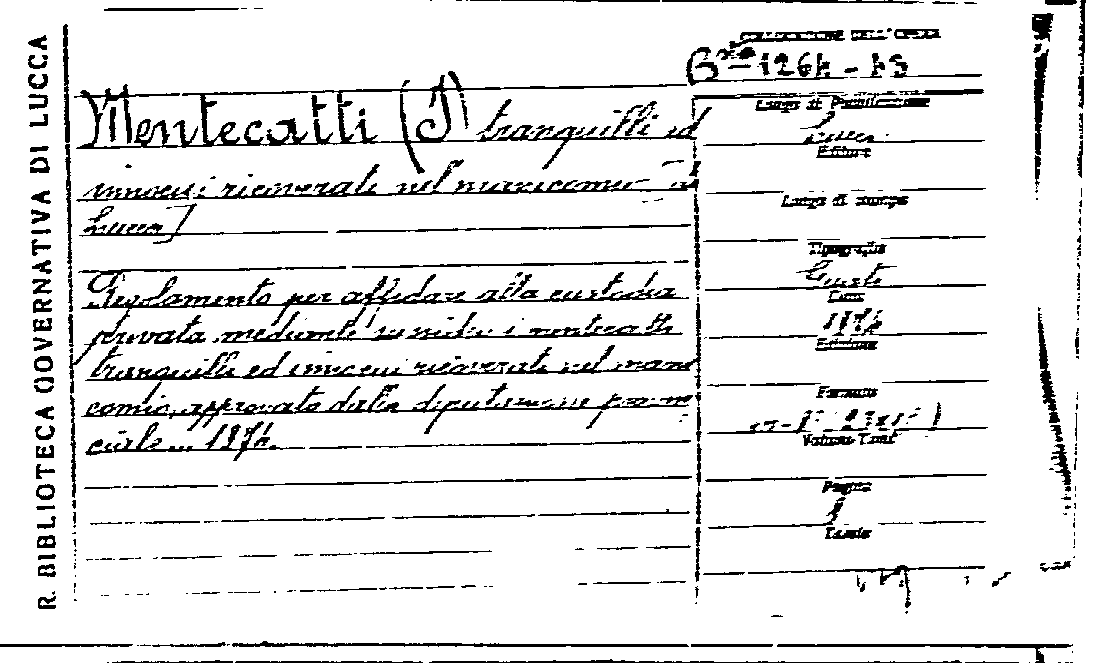 R. BIBLIOTECA GOVERNATIVA DI LUCCA
COLLOCAZIONE DELL'OPERA
Mentecatti (I) tranquilli ed
innocui ricoverati nel manicomio di
Lucca]
Regolamento per affidare alla custodia
privata mediante sussidio i mentecatti
tranquilli ed innocui ricoverati nel mani
comio, approvato dalla deputazione provin
ciale... 1874.
Luogo di Pubblicazione
Lucca
Editore
Luogo di stampa
Tipografia
Giusti
Data
1874
Edizione
Formato
Volumi-Tomi
Pagine
Tavole